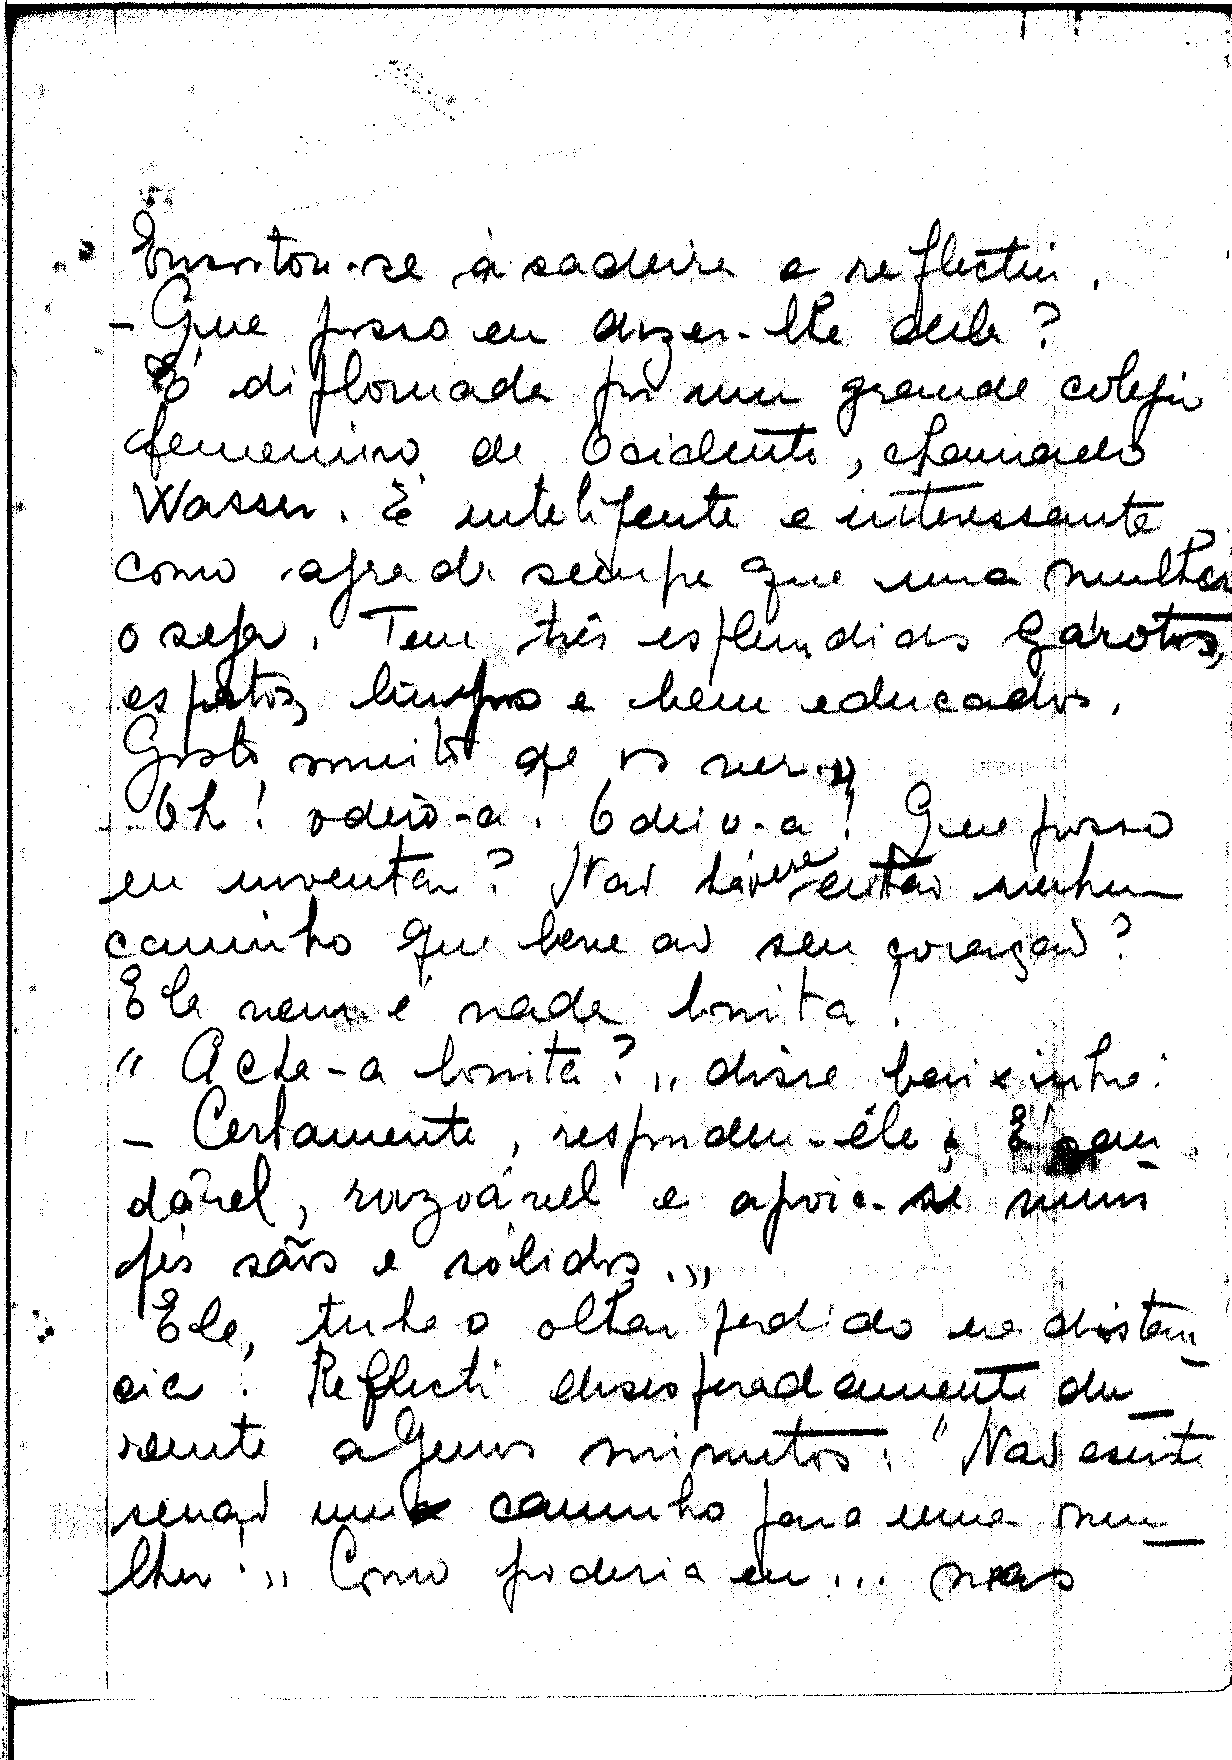 Encostou-se à cadeira e reflectiu.
- Que posso eu dizer-lhe dela?
É diplomada por um grande colegio
femenino de Ocidente, chamado
Wasser. É inteligente e interessante
como agrada sempre que uma mulher
o seja. Tem três esplendidos garotos,
espertos, limpos e bem educados.
Gosto muito de os ver.„
Oh! odeio-a. Odeio-a! Que posso
eu inventar? Não haverá então nenhum
caminho que leve ao seu coração?
Ela nem é nada bonita!
" Acha-a bonita?„ disse baixinho.
- Certamente, respondeu-êle; É sau-
dável, razoável e apoia-se nuns
pés sãos e sólidos.„
Ele, tinha o olhar perdido na distan-
cia. Reflecti desesperadamente du-
rante alguns minutos. "Não existe
senão um caminho para uma mu-
lher.„ Como poderia eu... mas